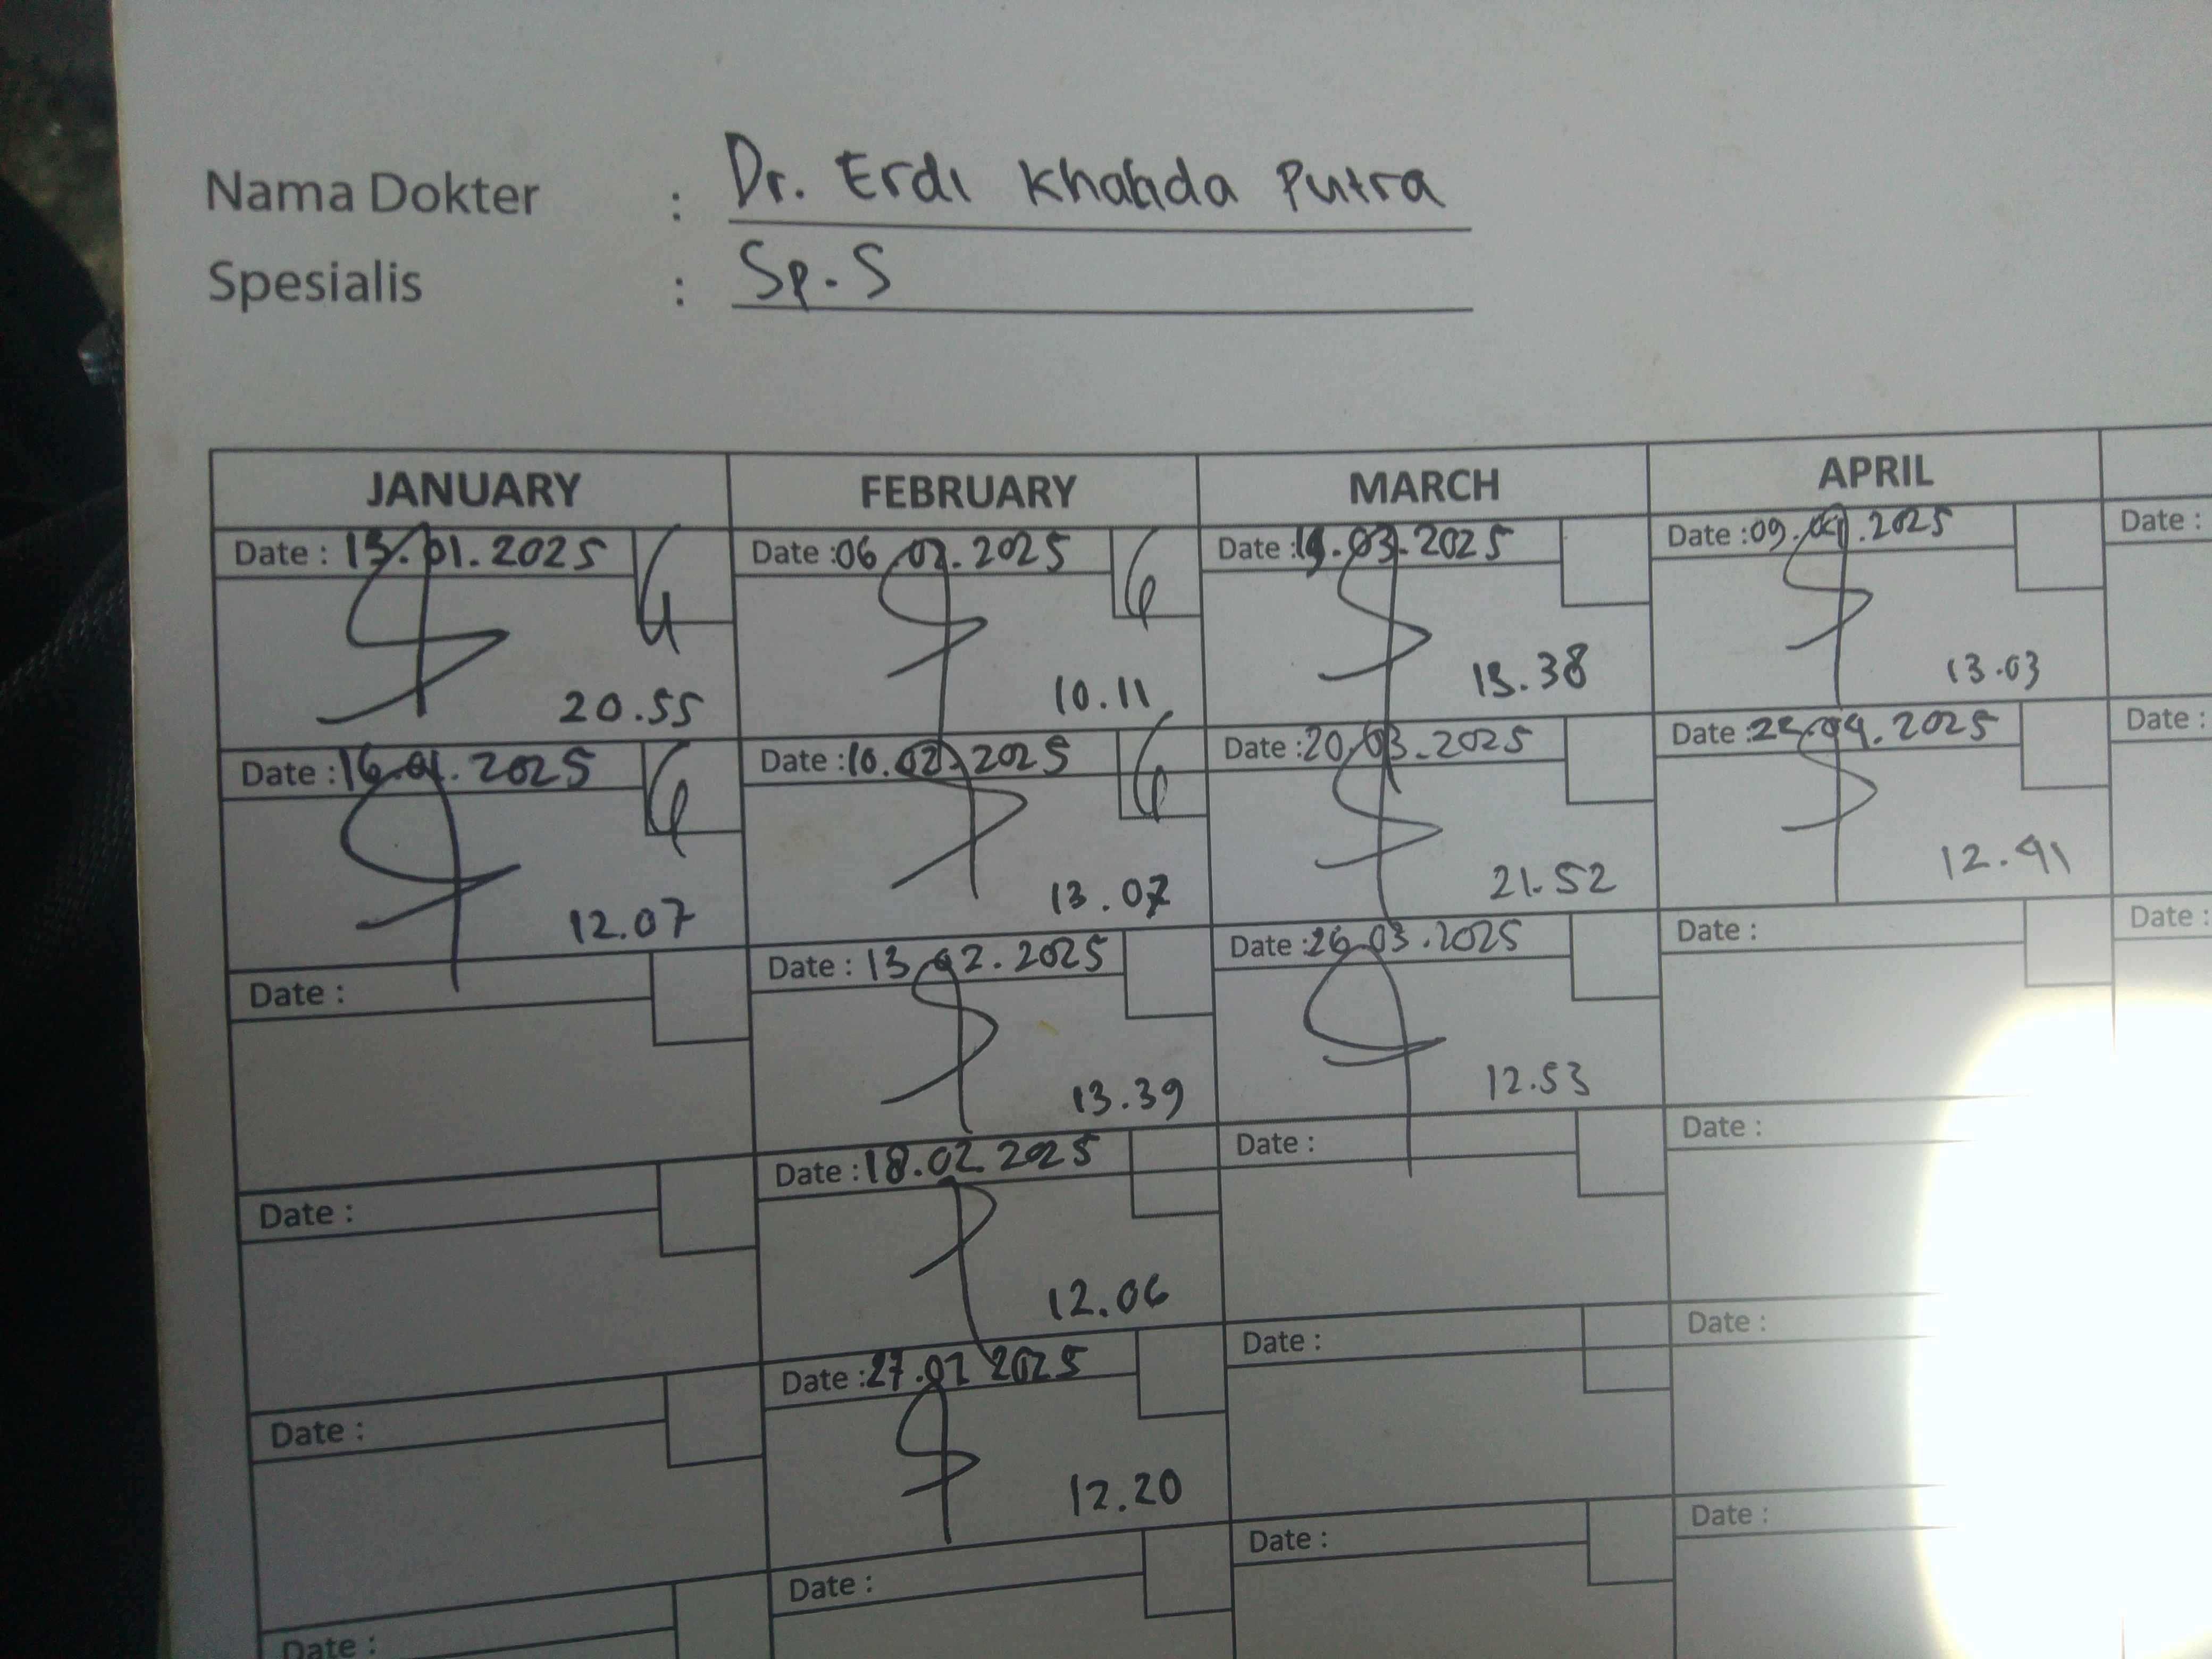 Nama Dokter : Dr. Erdi Khalida Putra
Spesialis : Sp.S
JANUARY FEBRUARY MARCH APRIL
Date : 13.01.2025 Date : 06.02.2025 Date : .03.2025 Date : 09.04.2025 Date :
20.55 10.11 13.38 13.03
Date : 16.01.2025 Date : 10.02.2025 Date : 20.03.2025 Date : .04.2025 Date :
12.07 13.07 21.52 12.41
Date : Date : 13.02.2025 Date : 26.03.2025 Date : Date :
13.39 12.53
Date : Date : 18.02.2025 Date : Date :
12.06
Date : Date : 27.02.2025 Date : Date :
12.20
Date : Date : Date : Date :